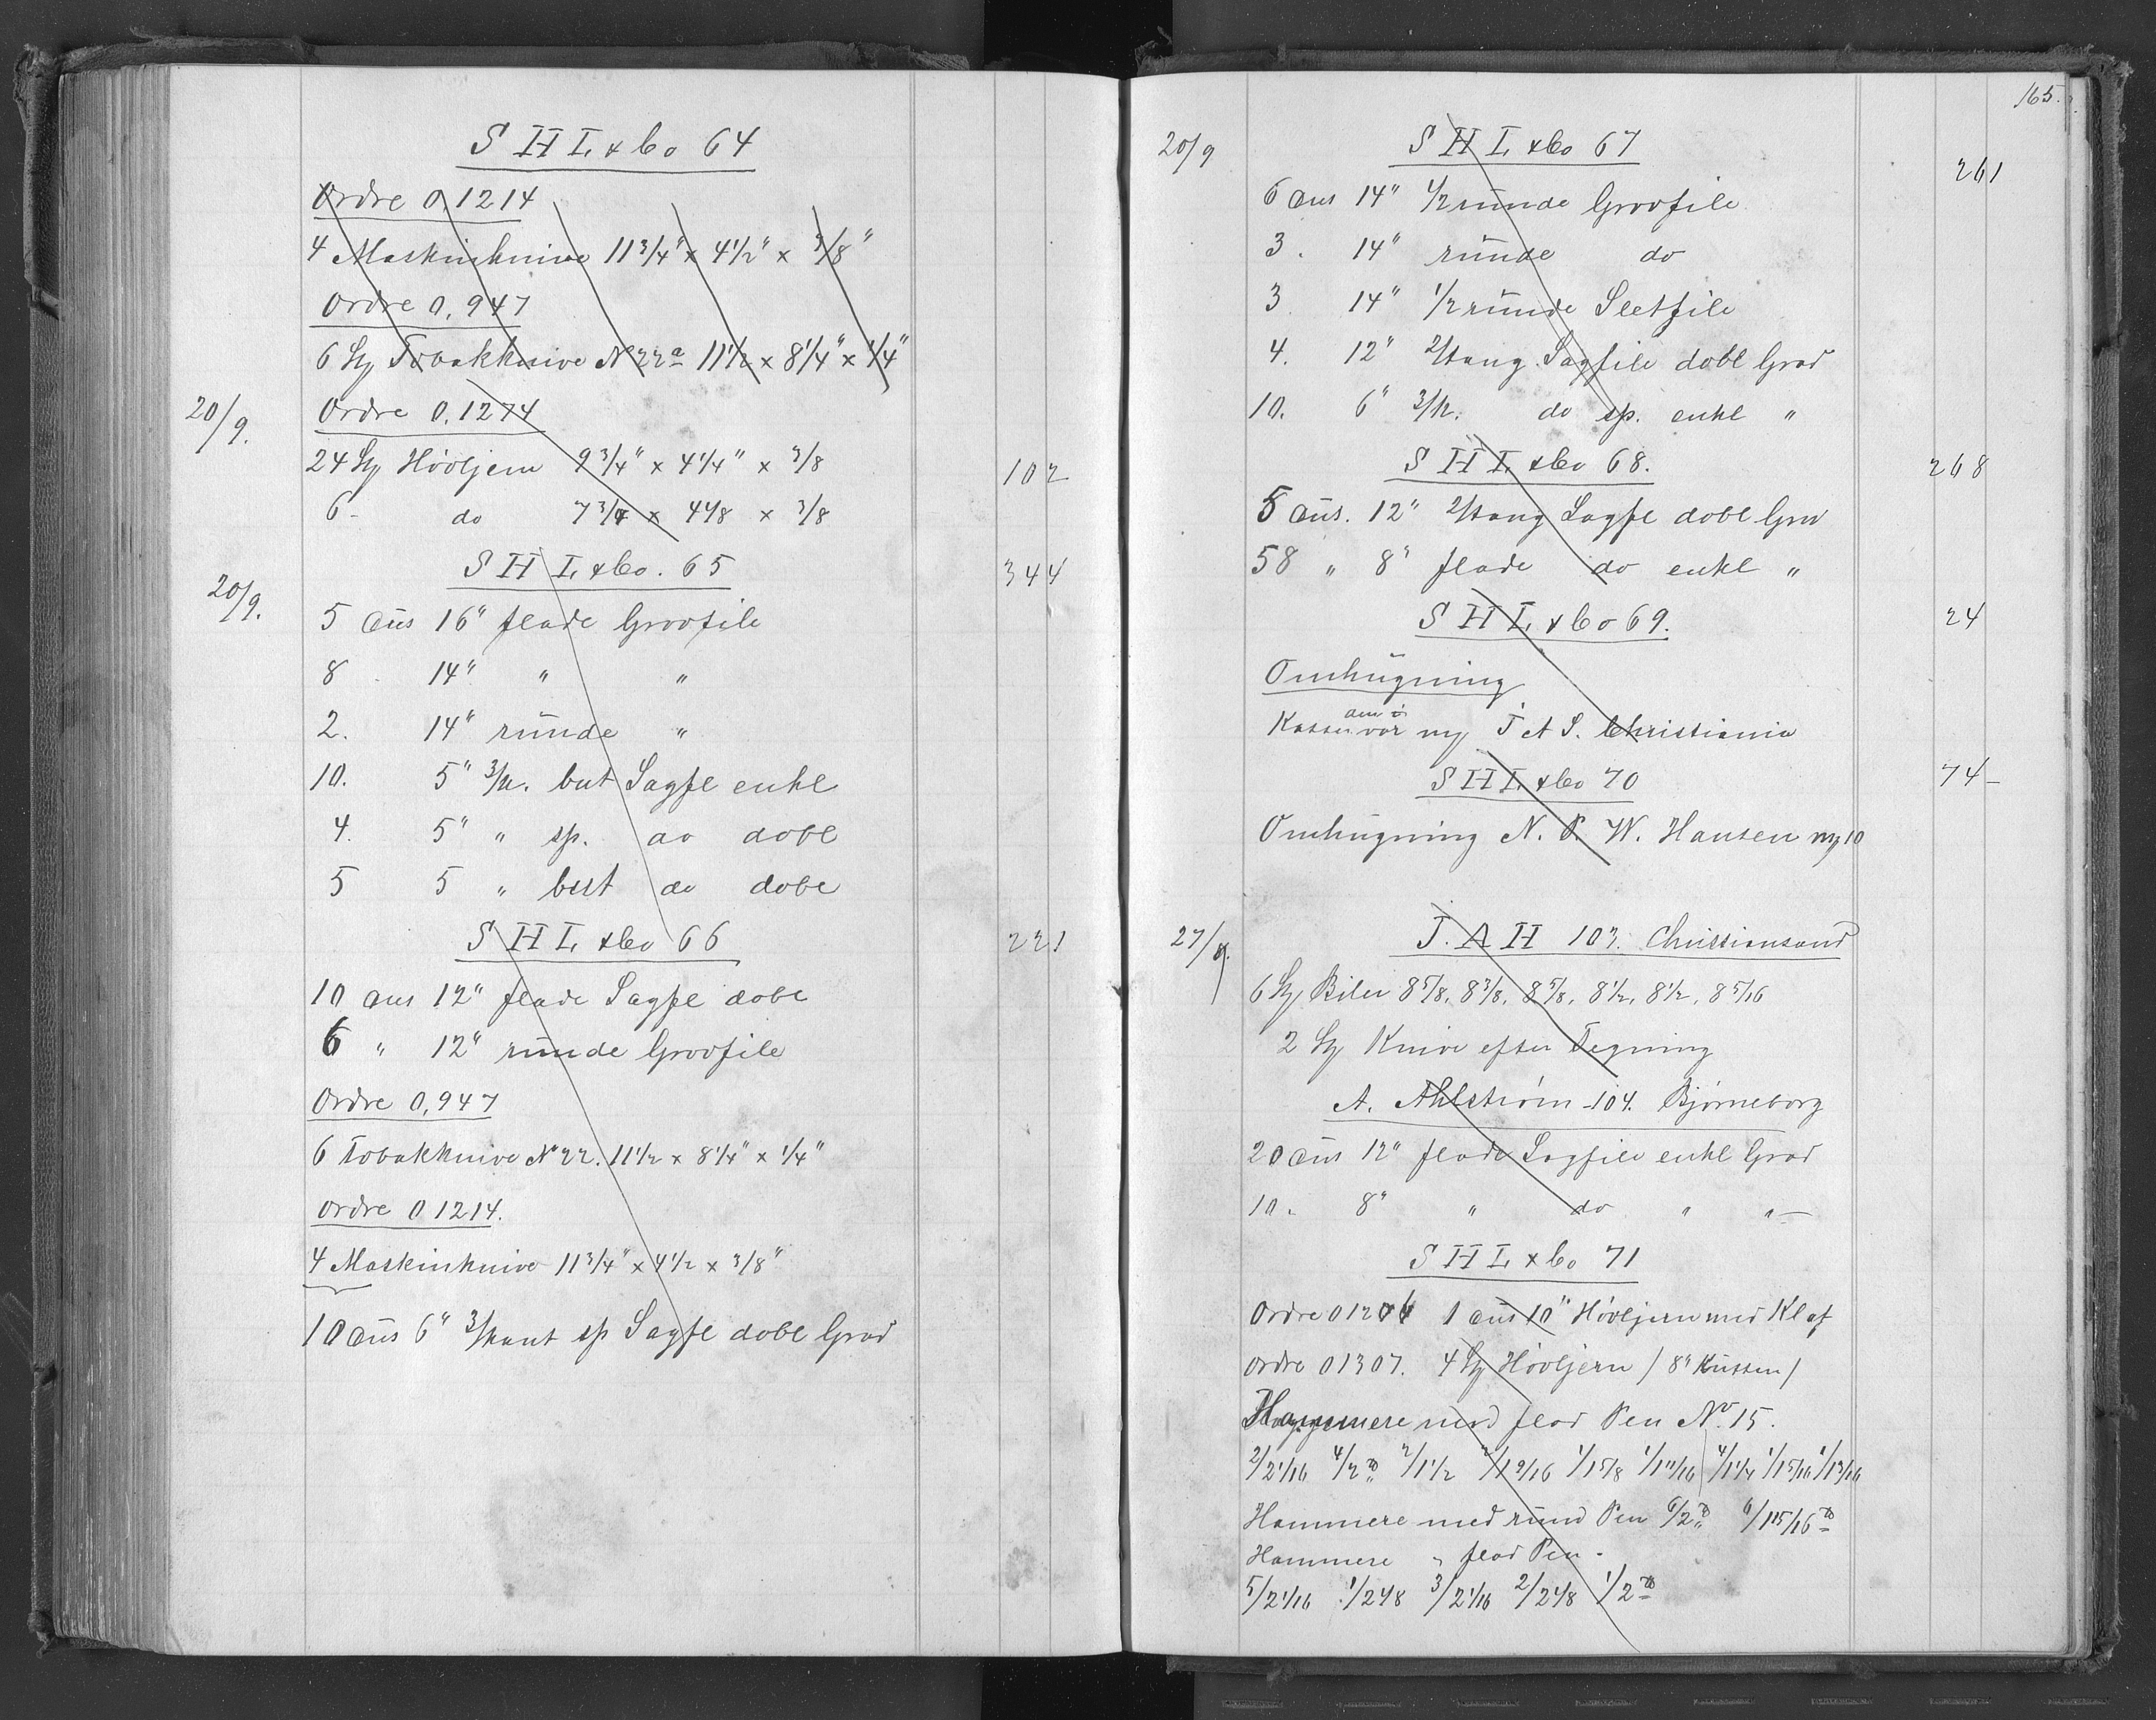 S H L & Co 64
Ordre 0.1214
4 Maskinknive 11 3/4" x 4 1/2" x 3/8"
Ordre 0.947
6 St Tobakknive No 22a 11 1/2 x 8 1/4" x 1/4"
20/9. Ordre 0.1274
24 St Høvljern 9 3/4" x 4 1/4" x 3/8 102
6 - do 7 3/4 x 4 1/8 x 3/8
S H L & Co. 65 344
20/9.
5 Dus 16" flade Grovfile
8 14" " "
2. 14" runde "
10. 5" 3/k. but Sagfl enkl
4. 5" " sp. do dobl
5 5 " but do dobl
S H L & Co 66 221
10 Dus 12" flade Sagfl dobl
6 " 12" runde Grovfile
Ordre 0,947
6 Tobakknive No 22. 11 1/2 x 8 1/4" x 1/4"
Ordre 0 1214.
4 Maskinknive 11 3/4" x 4 1/2 x 3/8"
10 Dus 6" 3/kant sp Sagfl dobl Grad
165.
20/9 S H L & Co 67 261
6 Dus 14" 1/2 runde Grovfile
3. 14" runde do
3 14" 1/2 runde Sletfile
4. 12" 2/tang Sagfile dobl Grad
10. 6" 3/k. do sp. enkl "
S H L & Co 68. 268
5 Dus. 12" 2/tang Sagfl dobl Gra
58 " 8" flade do enkl "
S H L & Co 69. 24
Omhugning
Kassen var J A S. Christiania
S H L & Co 70 74-
Omhugning N. P. W. Hansen 10
27/9. J. A H 103. Christiansand
6 St Biler 8 5/8, 8 3/8, 8 5/8, 8 1/2, 8 1/2, 8 5/16
2 St Knive efter Tegning
A. Ahlstrøm - 104. Bjørneborg
20 Dus 12" flade Sagfile enkl Grad
10. 8" " do " " -
S H L & Co 71
Ordre 0 1 Dus 10" Høvljern med Klaf
Ordre 0 1307. 4 St Høvljern / 8" Kussen /
Hammere med flad Pen No. 15.
2/2 1/16 4/2 2/1 1/2 2/1 9/16 1/1 5/8 1/1 11/16 4/1 1/4 1/1 5/16 1/1 3/16
Hammere med rund Pen 6/2 6/1 15/16
Hammere " flad Pen -
5/2 1/16 1/2 1/8 3/2 1/16 2/2 1/8 1/2